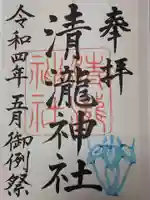 奉拝
清瀧神社
令和四年五月御例祭